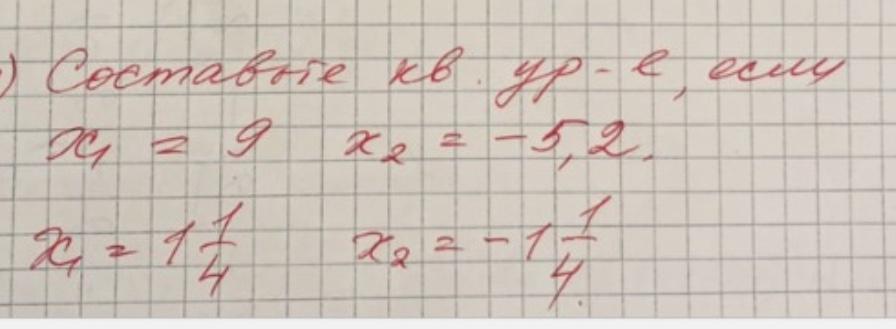 ) Составьте кв. ур-е, если
x₁ = 9 x₂ = -5,2.
x₁ = 1 1/4 x₂ = -1 1/4.